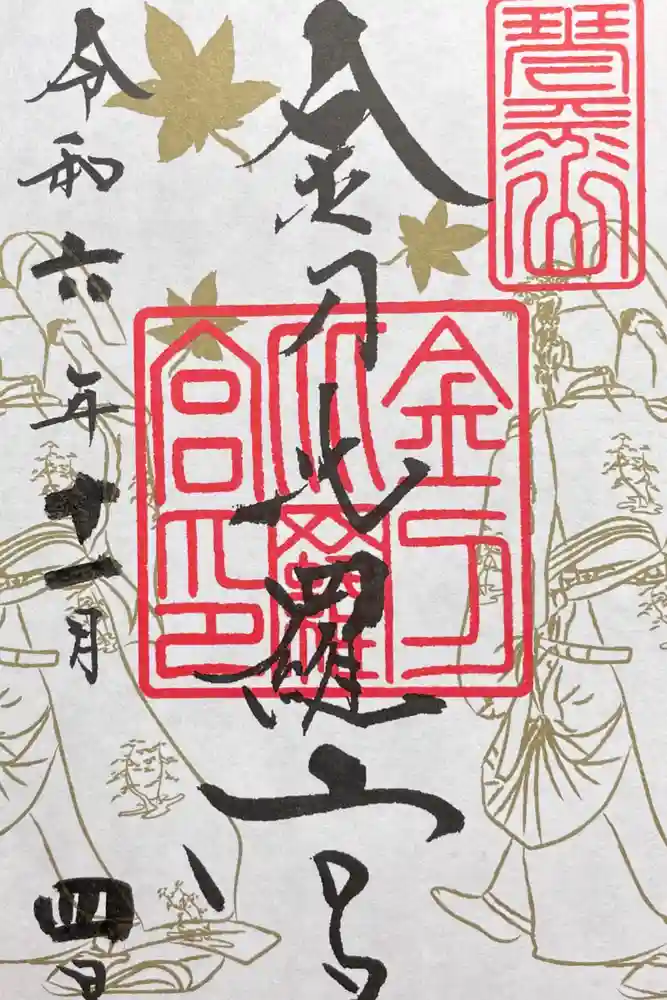 琴平山
金刀比羅宮
金刀
比羅
宮印
令和六年十一月四日